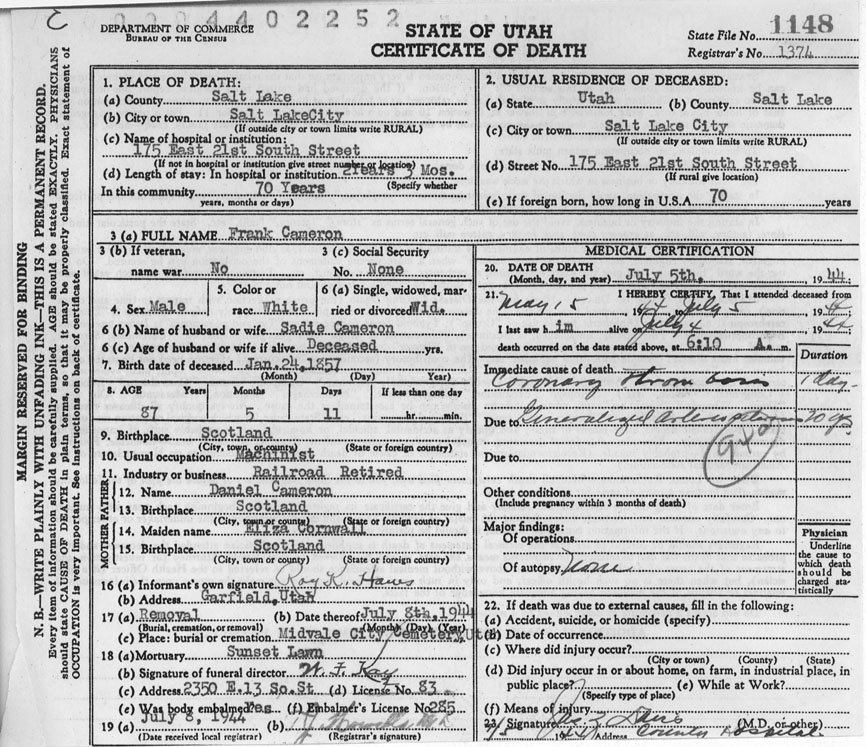 0004402252
DEPARTMENT OF COMMERCE
BUREAU OF THE CENSUS
STATE OF UTAH
CERTIFICATE OF DEATH
State File No. 1148
Registrar's No. 1374
MARGIN RESERVED FOR BINDING
N. B.—WRITE PLAINLY WITH UNFADING INK—THIS IS A PERMANENT RECORD.
Every item of information should be carefully supplied. AGE should be stated EXACTLY. PHYSICIANS
should state CAUSE OF DEATH in plain terms, so that it may be properly classified. Exact statement of
OCCUPATION is very important. See instructions on back of certificate.
1. PLACE OF DEATH:
(a) County Salt Lake
(b) City or town Salt LakeCity
(If outside city or town limits write RURAL)
(c) Name of hospital or institution:
175 East 21st South Street
(If not in hospital or institution give street number or location)
(d) Length of stay: In hospital or institution 2Years 3 Mos.
(Specify whether
In this community 70 Years
years, months or days)
2. USUAL RESIDENCE OF DECEASED:
(a) State Utah (b) County Salt Lake
(c) City or town Salt Lake City
(If outside city or town limits write RURAL)
(d) Street No. 175 East 21st South Street
(If rural give location)
(e) If foreign born, how long in U.S.A. 70 years
3 (a) FULL NAME Frank Cameron
3 (b) If veteran, name war No
3 (c) Social Security No. None
4. Sex Male
5. Color or race White
6 (a) Single, widowed, married or divorced Wid.
6 (b) Name of husband or wife Sadie Cameron
6 (c) Age of husband or wife if alive Deceased yrs.
7. Birth date of deceased Jan.24,1857
(Month) (Day) Year)
8. AGE Years Months Days If less than one day
87 5 11 hr. min.
9. Birthplace Scotland
(City, town, or county) (State or foreign country)
10. Usual occupation Machinist
11. Industry or business Railroad Retired
FATHER
12. Name Daniel Cameron
13. Birthplace Scotland
(City, town or county) (State or foreign country)
MOTHER
14. Maiden name Eliza Cornwall
15. Birthplace Scotland
(City, town or county) (State or foreign country)
16 (a) Informant's own signature Roy K.
(b) Address Garfield,Utah
17 (a) Removal (b) Date thereof July 8th.1944
(Burial, cremation, or removal) (Month) (Day) (Year)
(c) Place: burial or cremation Midvale City Cemetery,Utah
18 (a) Mortuary Sunset Lawn
(b) Signature of funeral director W. F. Kay
(c) Address 2350 E.13 So.St (d) License No. 83
(e) Was body embalmed? Yes (f) Embalmer's License No. 285
19 (a) July 8, 1944 (b)
(Date received local registrar) (Registrar's signature)
MEDICAL CERTIFICATION
20. DATE OF DEATH
(Month, day, and year) July 5th. 1944
21. I HEREBY CERTIFY, That I attended deceased from
May 15 1944 to July 5 1944
I last saw him alive on July 4 1944
death occurred on the date stated above, at 6:10 A. m.
Duration
Immediate cause of death
Coronary thrombosis 1 day
Due to Generalized Arteriosclerosis 20 yrs
940
Due to
Other conditions
(Include pregnancy within 3 months of death)
Major findings:
Of operations
Of autopsy None
Physician
Underline
the cause to
which death
should be
charged sta-
tistically
22. If death was due to external causes, fill in the following:
(a) Accident, suicide, or homicide (specify)
(b) Date of occurrence
(c) Where did injury occur?
(City or town) (County) (State)
(d) Did injury occur in or about home, on farm, in industrial place, in
public place? (e) While at Work?
(Specify type of place)
(f) Means of injury
23. Signature (M.D. or other)
Address County Hospital